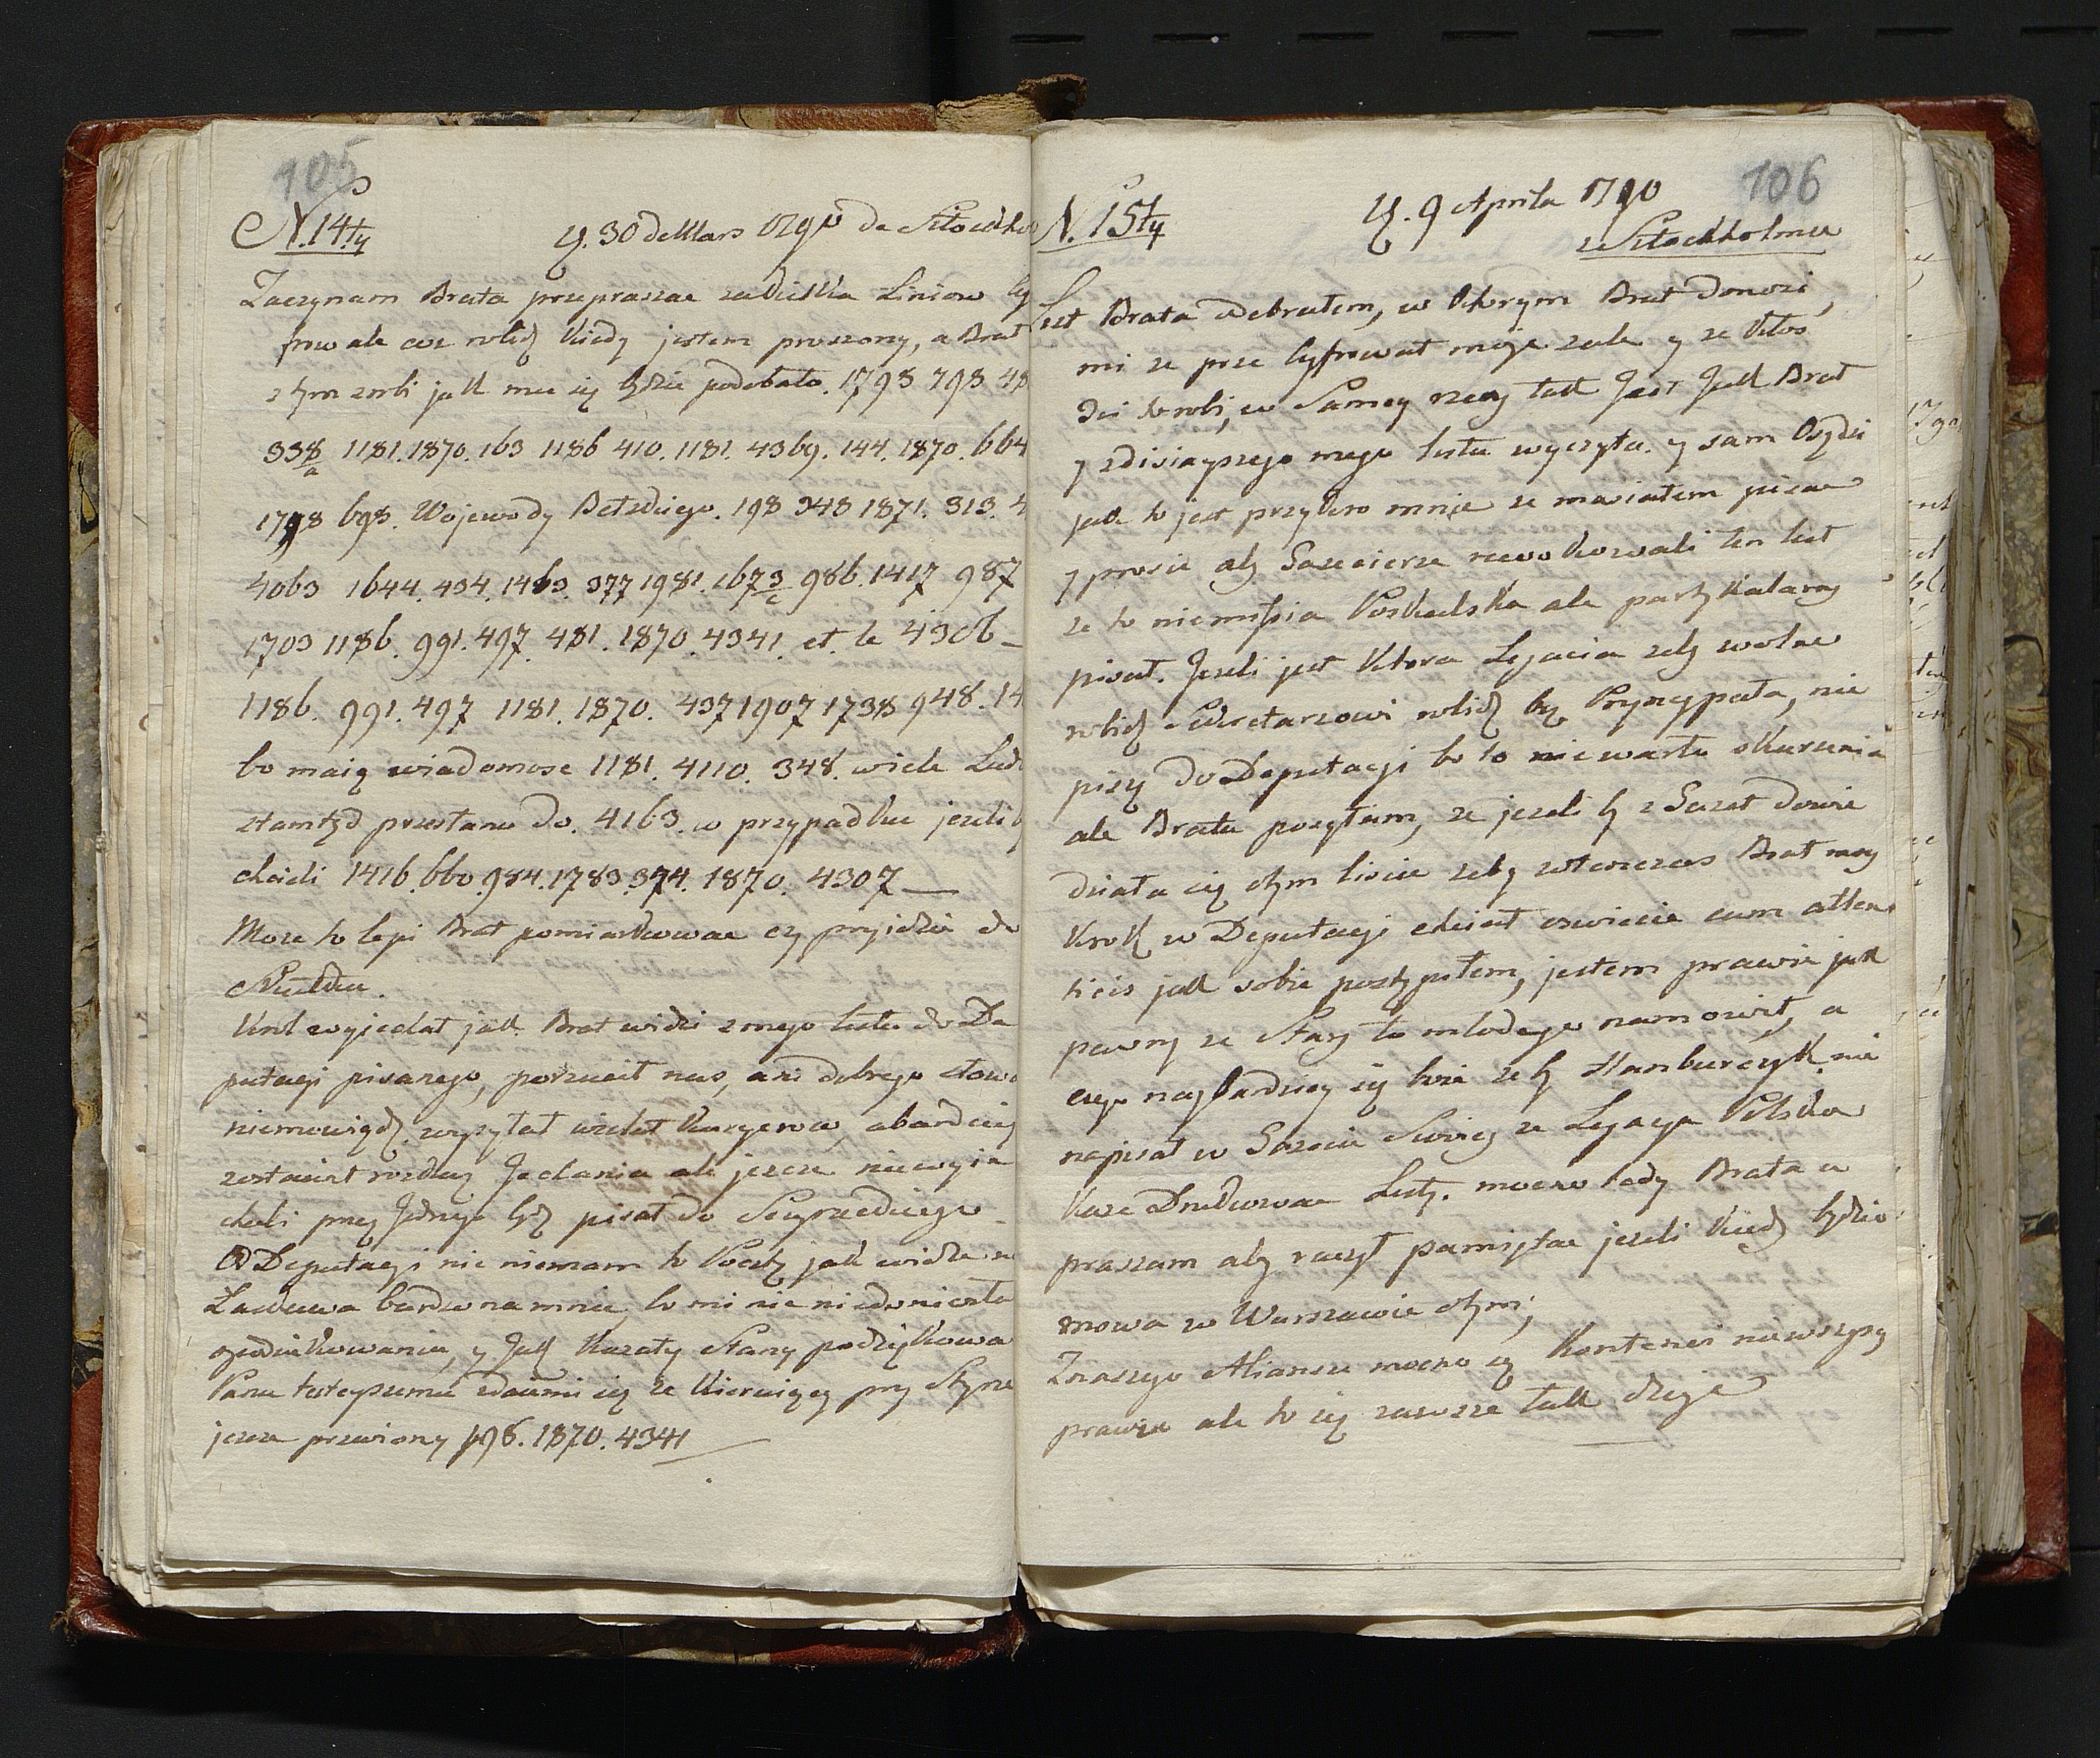 105
N. 14ty
y. 30 de Mars 1790 de Sztockho
Zaczynam Brata przepraszac za kielka Liniow Cy
frow ale coz robić Kiedy jestem proszony, a Brat
z tym zrobi jak mu się będzie podobało. 1798 798 48
338 a 1181. 1870. 163 1186 410. 1181. 4369. 144. 1870. 664
1798 698. Wojewody Betzkiego. 198 348 1871. 313. 4
4063 1644. 434. 1463. 377 1981. 1673 c 986. 1417 987
1703 1186. 991. 497. 481. 1870. 4341. et. le 4306
1186. 991. 497 1181. 1870. 437 1907 1738 948. 14
bo maią wiadomosc 1181. 4110. 348. wiele Lud
ztamtąd przesłano do. 4163. w przypadku jezeli
chcieli 1416. 660 984. 1783. 374. 1870. 4307 —
Moze to lepi Brat pomiarkowac czy przyidzie do
Skutku.
Krol wyjechał jak Brat widzi z mego listu do De
putacyi pisanego, porzucił nas, ani dobrego słowa
niemowiąc, wysyłał wielat Kuryerow, a bardziey
zostawił rozkaz Jechania ale jeszcze niewyie
chali przy Jednego był pisał do
Od Deputacyi nic niemam to Poczty jak widze
Łaskawa bardzo na mnie, bo mi nic niedoniosła
o podziekowaniu, y Jak Kazały Stany podziękowa
Panu tuteyszemu zdaiemi się ze Kieruiący przy Styrze
jeszcze przeciwny 198. 1870. 4341
106
N. 15ty
y. 9 Aprila 1790
z Sztockholmu
List Brata odebrałem, w ktorym Brat donosi,
mi ze prze Cyfrował moje zale y ze ktos
Dis to robi, w Samey rzeczy tak Jest Jak Brat
y z dzisiayszego mego listu wyczyta. y sam Osądzi
jak to jest przykro mnie ze musiałem pisac
y prosic aby Gazecierze rewokowali ten list
ze to nie Missia Polska ale partykularny
pisał. Jezeli jest ktora Legacia zeby wolno
robić Sekretarzowi robić bez Pryncypała, nie
piszę do Deputacyi bo to nie warte skarzenia
ale Brata posyłam, ze jezeli by z Gazet dowie
działa się o tym liscie zeby wtenczas Brat moy
krok w Deputacyi chciał oswiecic cum atten
ticis jak sobie postąpiłem, jestem prawie jak
pewny ze Stary to młodego namowił, a
czego naybardziey się boie ze by Hamburczyk nie
napisał w Gazecie Swoiey ze Legacya Polska
Kaze Drukowac Listy. mocno tedy Brata u
praszam aby raczył pamiętac jezeli Kiedy będzie
mowa w Warszawie o tym,
Z naszego Aliansu mocno są Kontenci niewszyscy
prawda ale to się zawsze tak dzije